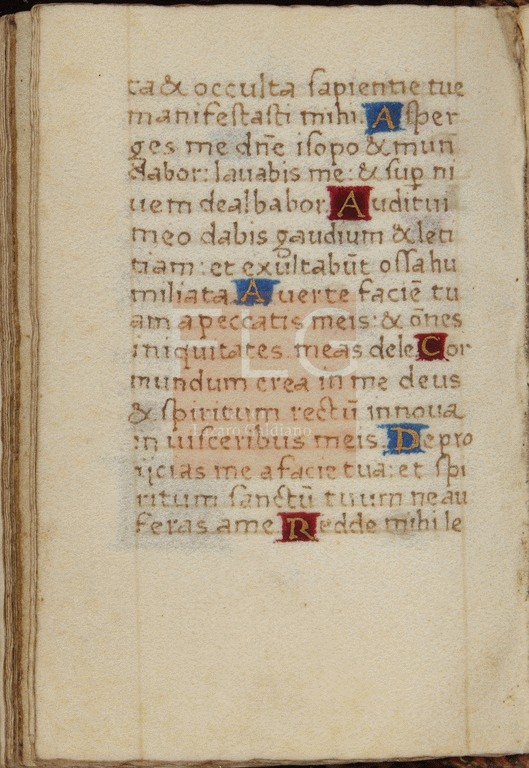 ta & occulta sapientie tue
manifestasti mihi. Asper
ges me dñe isopo & mun
dabor: lauabis me: & sup ni
uem dealbabor. Auditui
meo dabis gaudium & leti
tiam: et exultabūt ossa hu
miliata. Auerte faciē tu
am a peccatis meis: & oñes
iniquitates meas dele. Cor
mundum crea in me deus
& spiritum rectū innoua
in uisceribus meis. Depro
ijcias me a facie tua: et spi
ritum sanctū tuum ne au
feras ame. Redde mihi le
FLG
Lázaro Galdiano